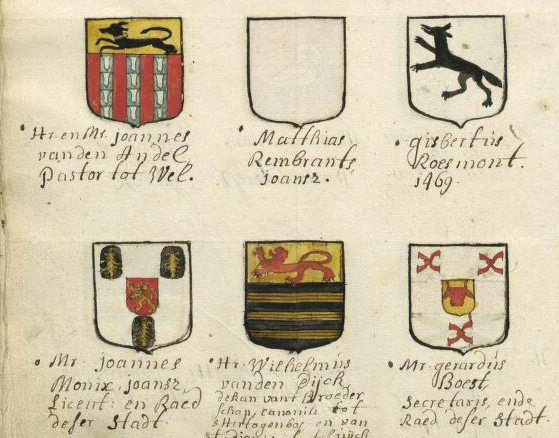 Hr en Mr. Joannes
vanden Aÿdel,
Pastor tot Wel.
Matthias
Rembrants
Joansz.
gisbertus
Roesmont.
1469.
Mr. Joannes
Monix. Joansz,
Licent: en Raed
deser Stadt.
Hr. Wilhelmus
vanden Dijck,
dekan vant Broeder
schap, canonik tot
sHertogenbos en van
Mr. gerardus
Boest,
Secretaris, ende
Raed deser Stadt.